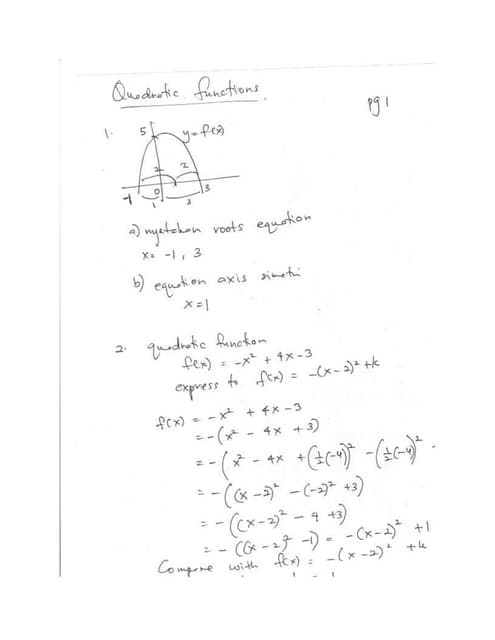 Quadratic functions.
pg 1
1.
5
y=f(x)
2 2
-1 0 3
1 3
a) nyatakan roots equation
x = -1, 3
b) equation axis simetri
x = 1
2. quadratic function
f(x) = -x² + 4x - 3
express to f(x) = -(x-2)² + k
f(x) = -x² + 4x - 3
= -(x² - 4x + 3)
= -(x² - 4x + (½(-4))² - (½(-4))².
= -((x-2)² - (-2)² + 3)
= -((x-2)² - 4 + 3)
= -((x-2)² - 1) = -(x-2)² + 1
Compare with f(x) = -(x-2)² + k